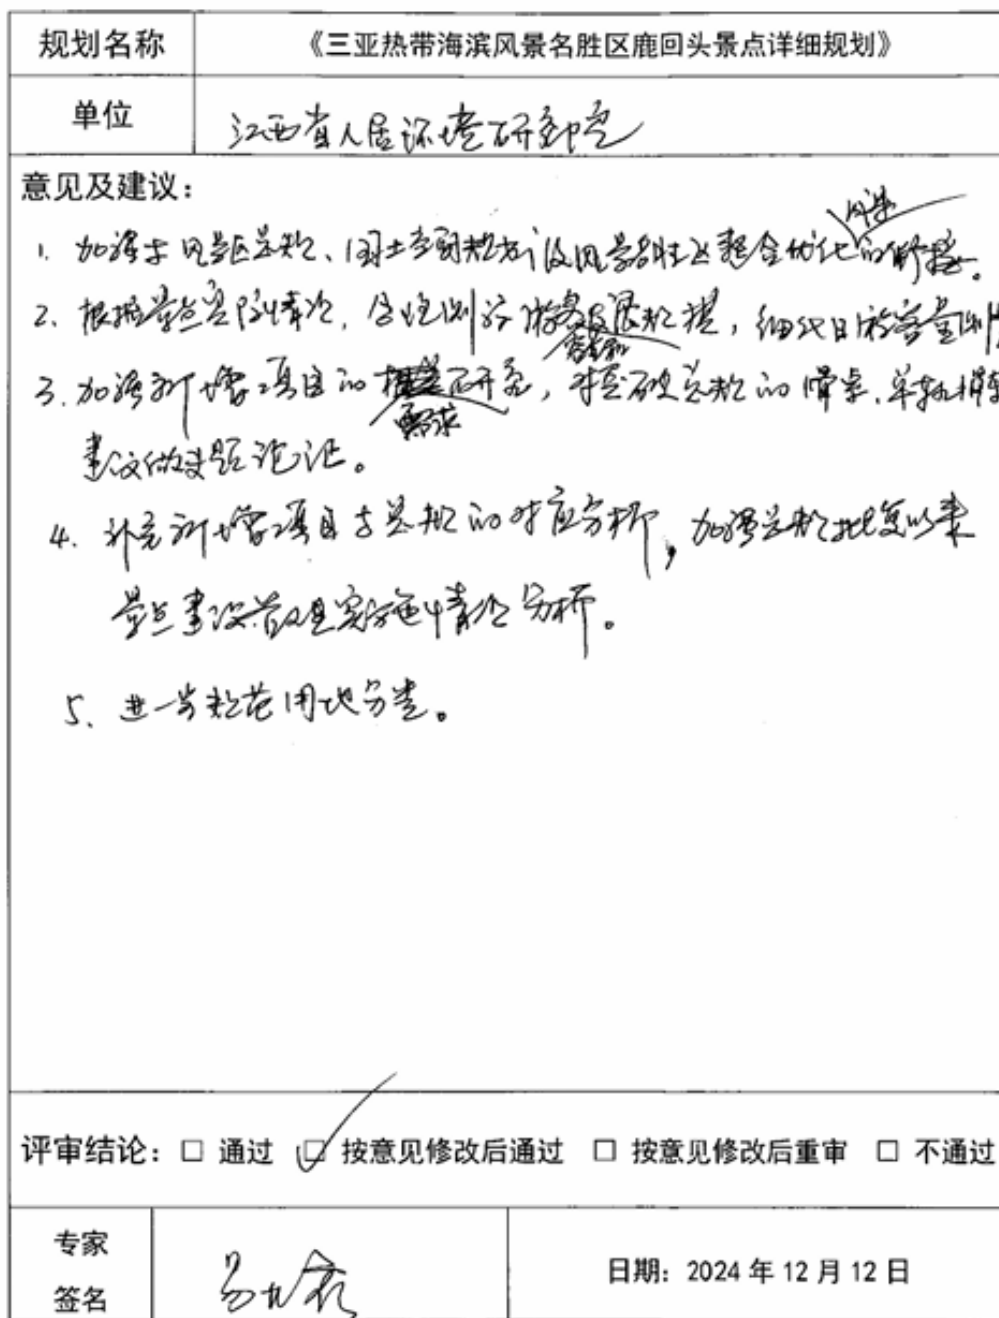 规划名称 《三亚热带海滨风景名胜区鹿回头景点详细规划》
单位 江西省人居环境研究院
意见及建议：
内涉
1. 加强与风景区总规、国土空间规划以及风景名胜区整合优化的衔接。
2. 根据景点实际情况，合理测算游客规模，细化日游客量
3. 加强新增项目的研究，对突破总规的滑索、单轨滑车
需求
建议做专题论证。
4. 补充新增项目与总规的对应分析，加强总规批复以来
景点建设实施情况分析。
5. 进一步规范用地分类。
评审结论：□ 通过 □ 按意见修改后通过 □ 按意见修改后重审 □ 不通过
专家 日期：2024 年 12 月 12 日
签名